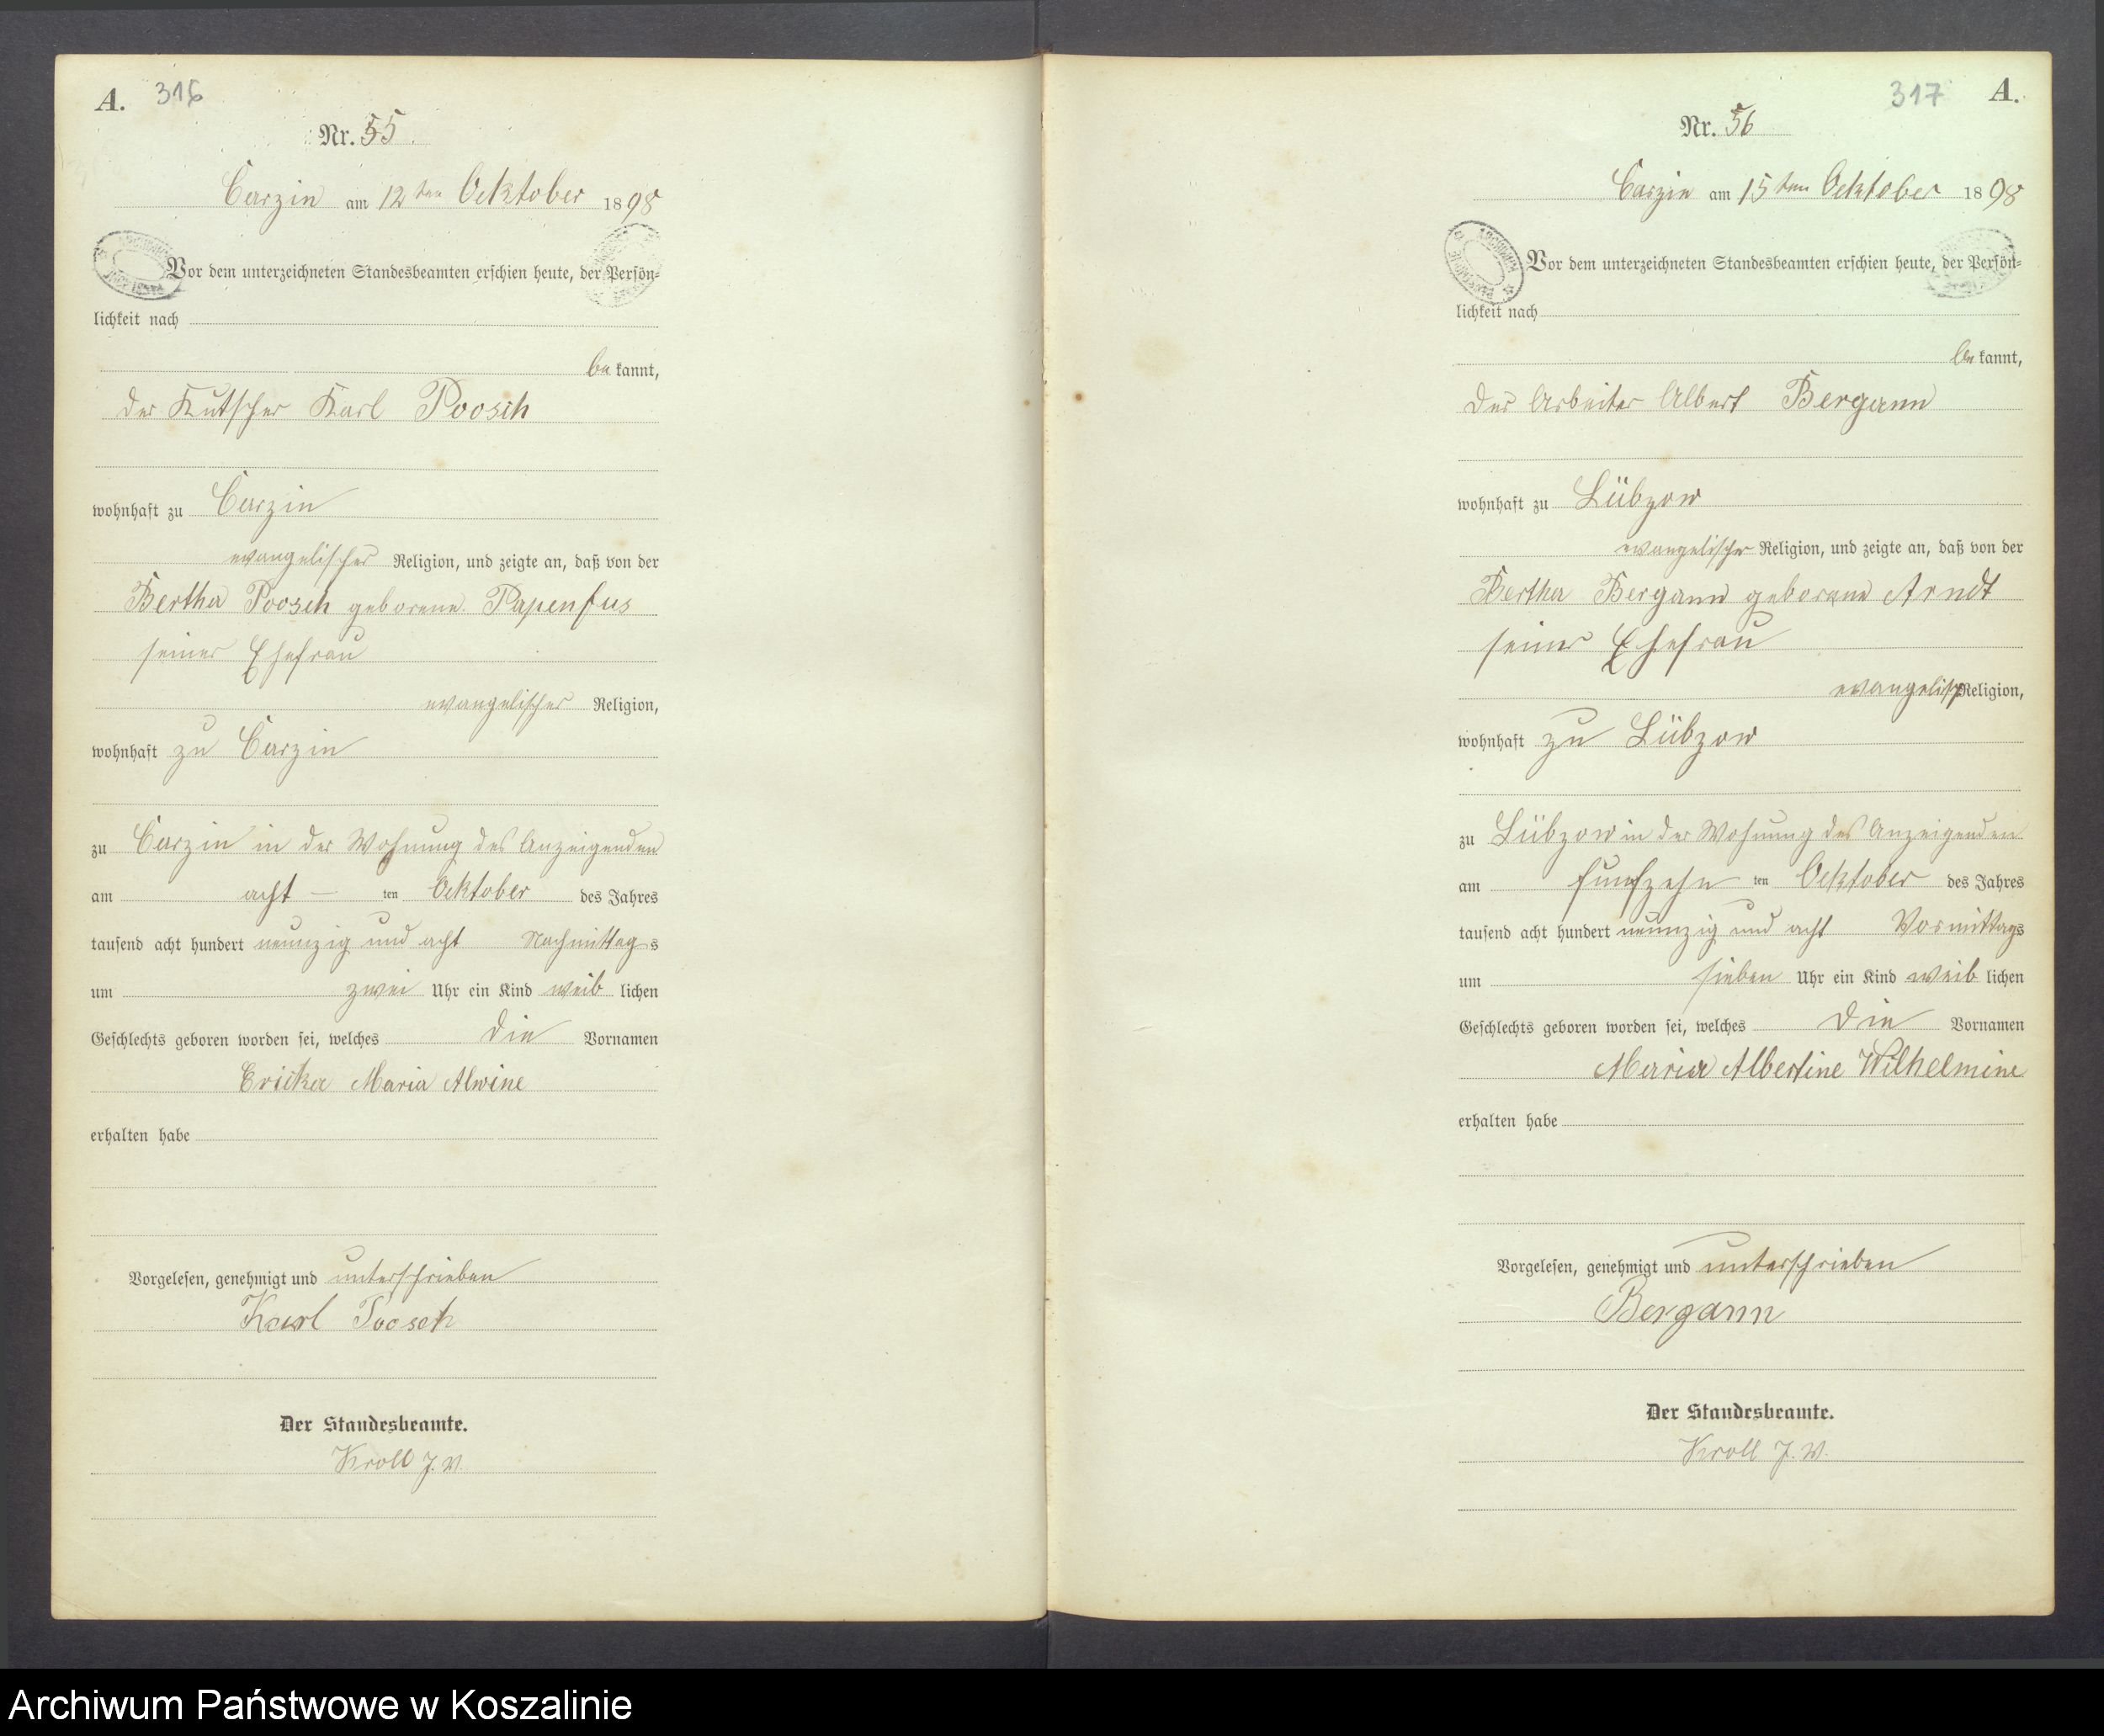 A. 316
Nr. 55.
Carzin am 12ten Ocktober 1898
Vor dem unterzeichneten Standesbeamten erschien heute, der Persön-
lichkeit nach
be kannt,
der Kutscher Karl Poosch
wohnhaft zu Carzin
evangelischer Religion, und zeigte an, daß von der
Bertha Poosch geborene Papenfus
seiner Ehefrau
evangelischer Religion,
wohnhaft zu Carzin
zu Carzin in der Wohnung des Anzeigenden
am acht – ten Ocktober des Jahres
tausend acht hundert neunzig und acht Nachmittags
um zwei Uhr ein Kind weib lichen
Geschlechts geboren worden sei, welches die Vornamen
Ericka Maria Alwine
erhalten habe
Vorgelesen, genehmigt und unterschrieben
Karl Poosch
Der Standesbeamte.
Kroll J. V.
317 A.
Nr. 56
Carzin am 15ten Ocktober 1898
Vor dem unterzeichneten Standesbeamten erschien heute, der Persön-
lichkeit nach
be kannt,
der Arbeiter Albert Bergann
wohnhaft zu Lübzow
evangelischer Religion, und zeigte an, daß von der
Bertha Bergann geborene Arndt
seiner Ehefrau
evangelisch Religion,
wohnhaft zu Lübzow
zu Lübzow in der Wohnung des Anzeigenden
am funfzehn ten Ocktober des Jahres
tausend acht hundert neunzig und acht Vormittags
um sieben Uhr ein Kind weib lichen
Geschlechts geboren worden sei, welches die Vornamen
Maria Albertine Wilhelmine
erhalten habe
Vorgelesen, genehmigt und unterschrieben
Bergann
Der Standesbeamte.
Kroll J. V.
Archiwum Państwowe w Koszalinie